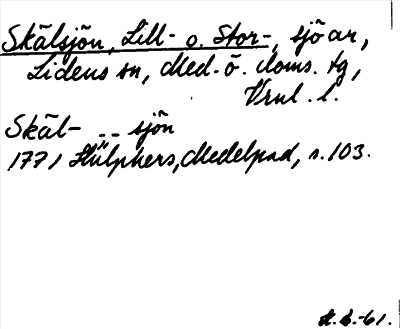 Skälsjön, Lill- o. Stor-, sjöar,
Lidens sn, Med. ö. doms. tg,
Vrnl. l.
Skäl- .. sjön
1771 Hülphers, Medelpad, s. 103.
H.G.-61.